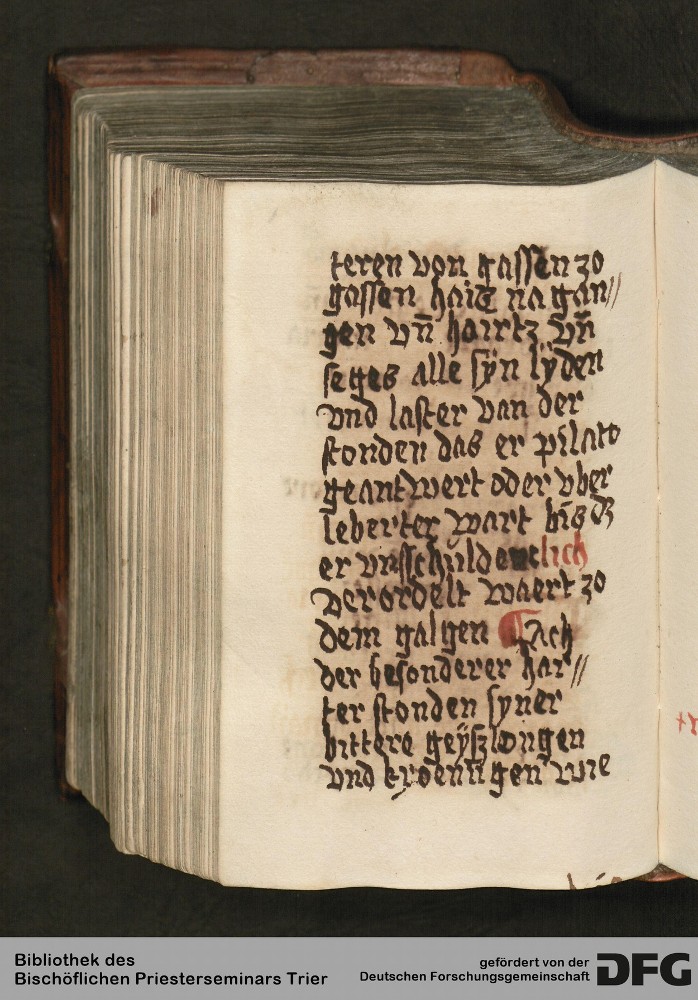 teren von gassen zo
gassen hait na gan//
gen vn̄ hairtz vn̄
seges alle sÿn lÿden
vnd laster van der
stonden das er pilato
geantwert oder vber
leberter wart bis
er vnsschuldenclich
verordelt waert zo
dem galgen Ach
der besonderer har//
ter stonden syner
bittere geÿszlongen
vnd kroenūgen wie
Bibliothek des
Bischöflichen Priesterseminars Trier
gefördert von der
Deutschen Forschungsgemeinschaft
DFG